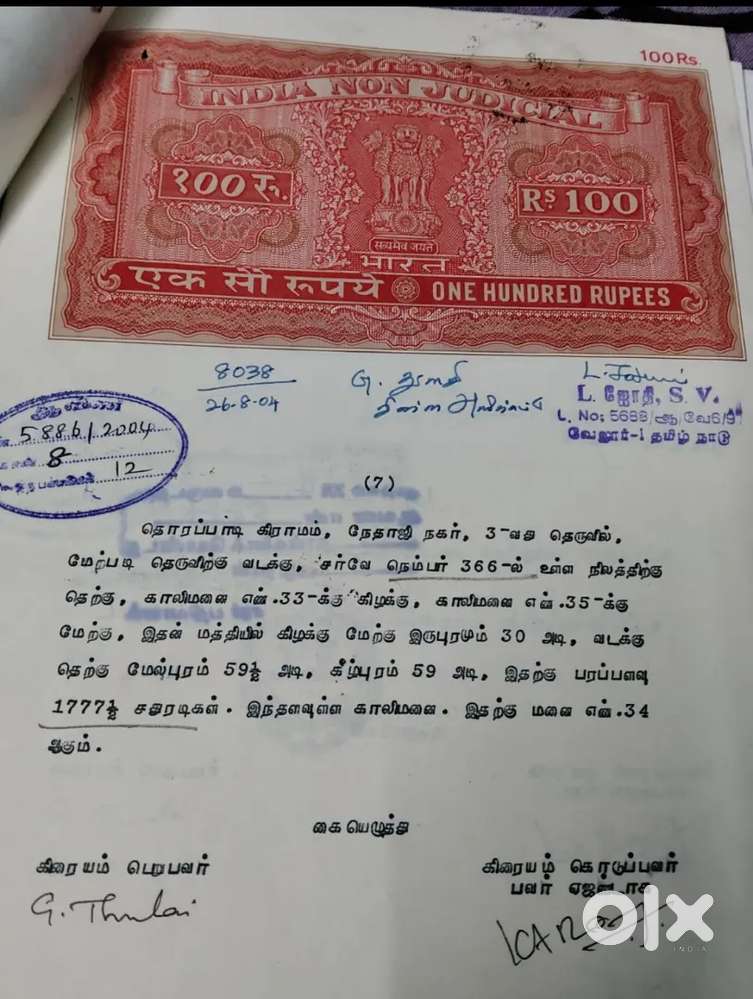 100Rs.
INDIA NON JUDICIAL
१00 रु.
RS 100
सत्यमेव जयते
भारत
एक सौ रुपये
ONE HUNDRED RUPEES
8038
26-8-04
G. துளசி
L. ஜோதி, S. V.
L. No; 5688/ஆ/வே6/9
வேலூர்-1 தமிழ் நாடு
5886/2004
8
12
(7)
தொரப்பாடி கிராமம், நேதாஜி நகர், 3-வது தெருவில்,
மேற்படி தெருவிற்கு வடக்கு, சர்வே நெம்பர் 366-ல் உள்ள நிலத்திற்கு
தெற்கு, காலிமனை எண்.33-க்கு கிழக்கு, காலிமனை எண்.35-க்கு
மேற்கு, இதன் மத்தியில் கிழக்கு மேற்கு இருபுரமும் 30 அடி, வடக்கு
தெற்கு மேல்புரம் 59½ அடி, கீழ்புரம் 59 அடி, இதற்கு பரப்பளவு
1777½ சதுரடிகள். இந்தளவுள்ள காலிமனை. இதற்கு மனை எண்.34
ஆகும்.
கையெழுத்து
கிரையம் பெறுபவர்
கிரையம் கொடுப்பவர்
பவர் ஏஜண்டாக
G. Thulai
olx
INDIA